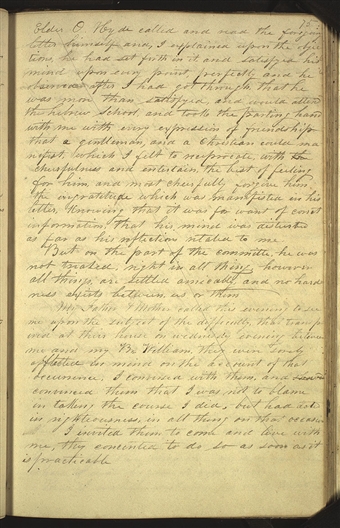 Elder O. Hyde called and read the foregoing
letter himself and, I explained upon the objec
tions, he had set forth in it and satisfyed his
mind upon every point, perfectly and he
observed after I had got through, that he
was more than satisfyed, and would attend
the hebrew School and took the parting hand
with me with every expression of friendship
that a gentleman, and a Christian could ma
nifest, which I felt to reciprocate, with
cheerfulness and entertain, the best of feeling
for him, and most cheerfully forgive him
the ingratitude which was manifisted in his
letter, knowing that it was for want of corect
information, that his mind was desturbed
as far as his reflections related to me.
But on the part of the committe, he was
not treated, right in all thing, however
all things, are settled amicably, and no hard
ness exists between us or them
My Father & Mother called this evening to see
me upon the subject of the difficulty, that transpi
ered at their house on wednesday evening between
me and my Br. William, they were sorely
afflicted in mind on the account of that
occurrence, I conversed with them, and
convinced them that I was not to blame
in taking the course I did, but had acted
in righteousness, in all thing on that occasion
I invited them to come and live with
me, they concented to do so as soon as it
is practicable